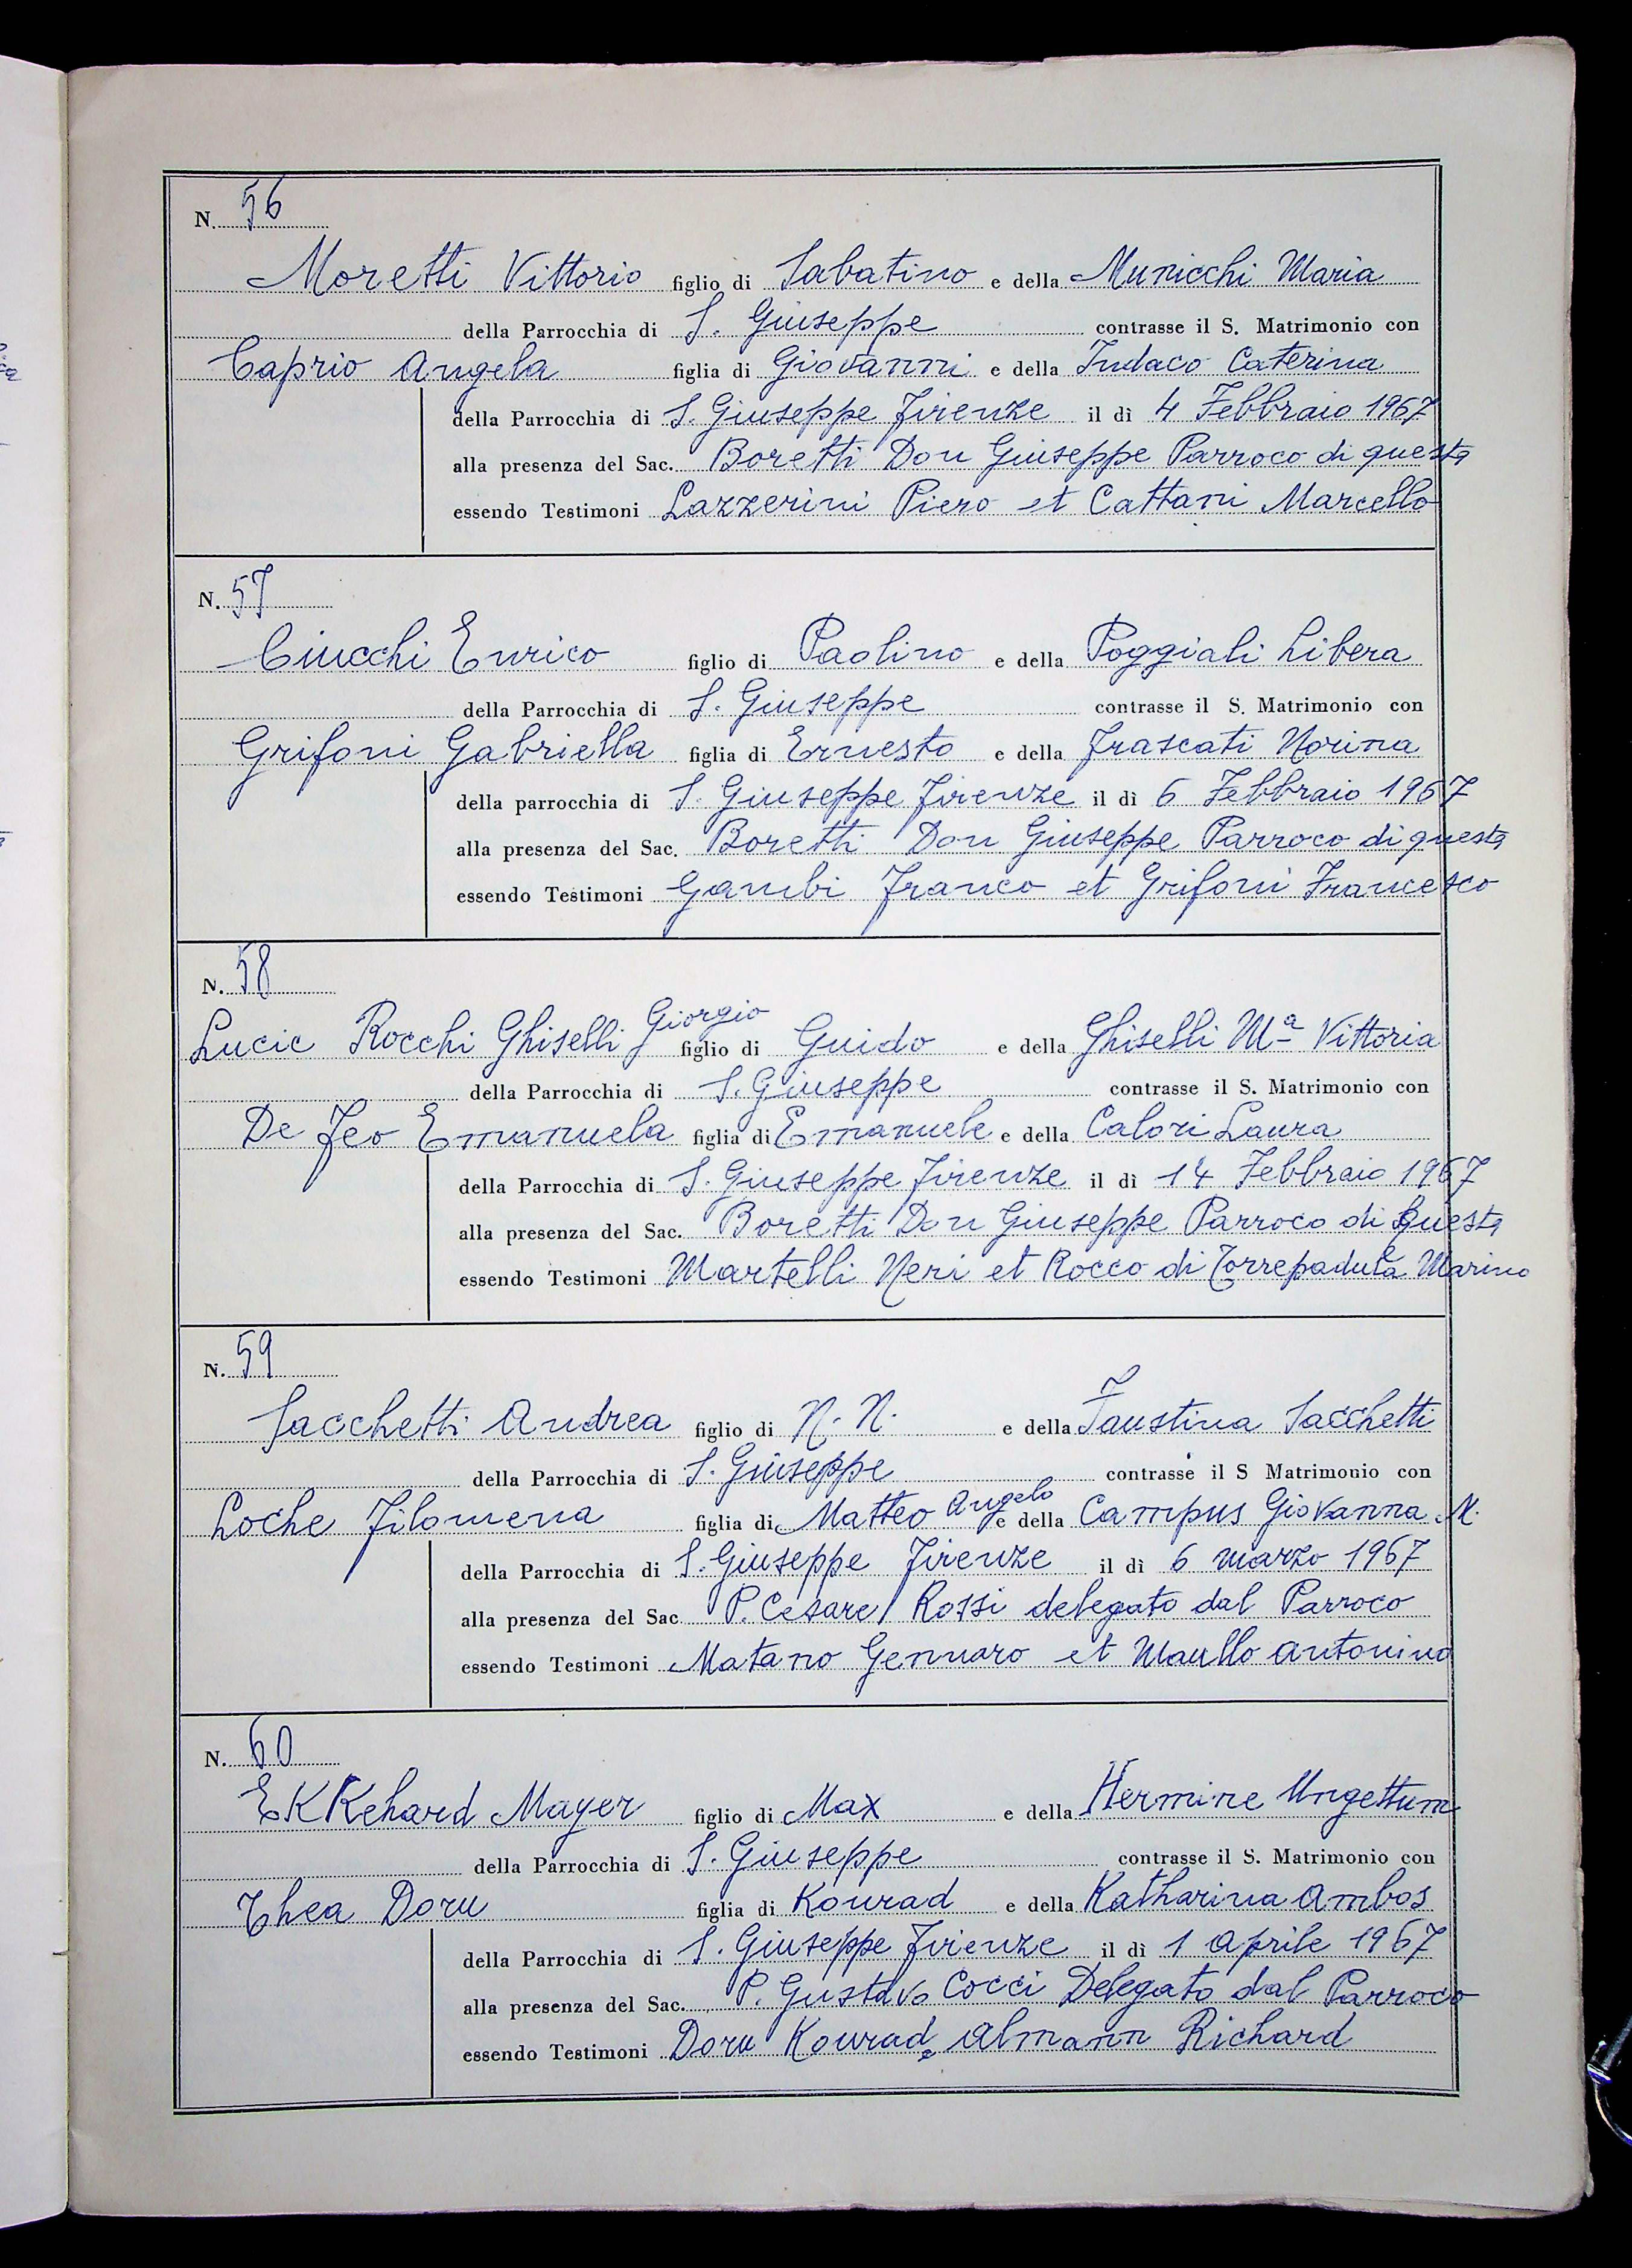 N. 56
Moretti Vittorio figlio di Sabatino e della Municchi Maria
della Parrocchia di S. Giuseppe contrasse il S. Matrimonio con
Caprio Angela figlia di Giovanni e della Indaco Caterina
della Parrocchia di S. Giuseppe Firenze il dì 4 Febbraio 1967
alla presenza del Sac. Boretti Don Giuseppe Parroco di questa
essendo Testimoni Lazzerini Piero et Cattani Marcello
N. 57
Ciucchi Enrico figlio di Paolino e della Poggiali Libera
della Parrocchia di S. Giuseppe contrasse il S. Matrimonio con
Grifoni Gabriella figlia di Ernesto e della Frascati Norina
della parrocchia di S. Giuseppe Firenze il dì 6 Febbraio 1967
alla presenza del Sac. Boretti Don Giuseppe Parroco di questa
essendo Testimoni Gambi Franco et Grifoni Francesco
N. 58
Rocchi Ghiselli Giorgio figlio di Guido e della Ghiselli Mª Vittoria
della Parrocchia di S. Giuseppe contrasse il S. Matrimonio con
De Feo Emanuela figlia di Emanuele e della Calori Laura
della Parrocchia di S. Giuseppe Firenze il dì 14 Febbraio 1967
alla presenza del Sac. Boretti Don Giuseppe Parroco di Questa
essendo Testimoni Martelli Neri et Rocco di Torrepadula Marino
N. 59
Sacchetti Andrea figlio di N. N. e della Faustina Sacchetti
della Parrocchia di S. Giuseppe contrasse il S Matrimonio con
Loche Filomena figlia di Matteo Angelo e della Campus Giovanna M.
della Parrocchia di S. Giuseppe Firenze il dì 6 marzo 1967
alla presenza del Sac. P. Cesare Rossi delegato dal Parroco
essendo Testimoni Matano Gennaro et Maullo Antonino
N. 60
EKKehard Mayer figlio di Max e della Hermine Ungettum
della Parrocchia di S. Giuseppe contrasse il S. Matrimonio con
Thea Dorn figlia di Konrad e della Katharina Ambos
della Parrocchia di S. Giuseppe Firenze il dì 1 Aprile 1967
alla presenza del Sac. P. Gustavo Cocci Delegato dal Parroco
essendo Testimoni Dorn Konrad e Almann Richard